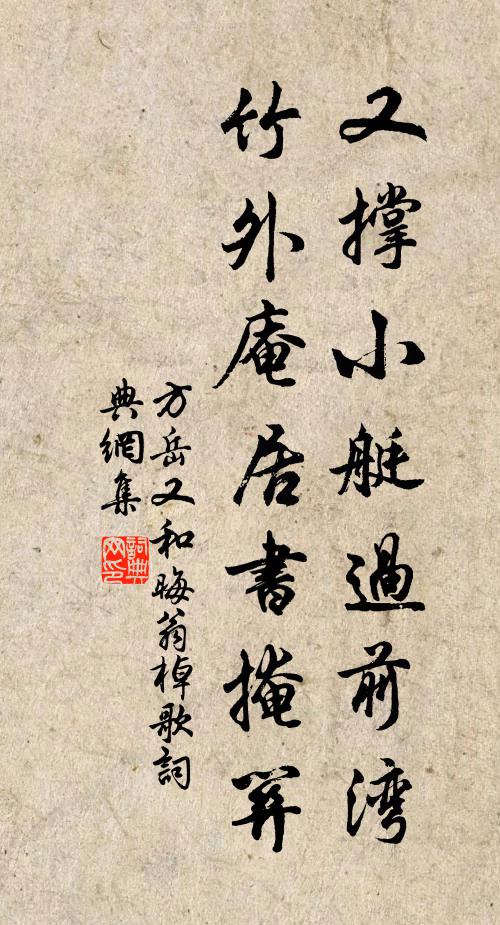 又撑小艇過前湾
竹外庵居書掩関
方岳又和晦翁棹歌詞
典網集
詞典
网印